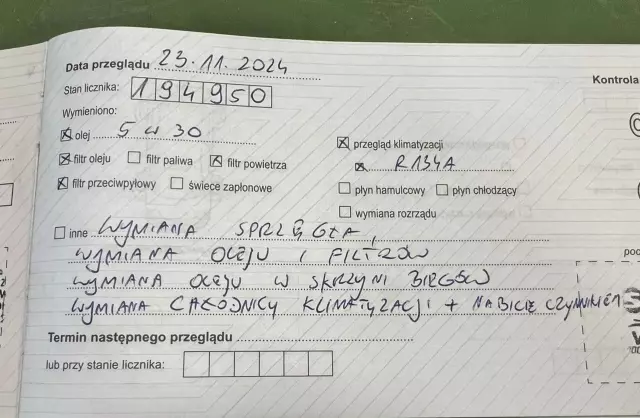 Data przeglądu 23.11.2024
Stan licznika: 194950
Kontrola
Wymieniono:
☒ olej 5 w 30
☒ przegląd klimatyzacji
☒ filtr oleju ☐ filtr paliwa ☒ filtr powietrza
x R134A
☒ filtr przeciwpyłowy ☐ świece zapłonowe
☐ płyn hamulcowy ☐ płyn chłodzący
☐ wymiana rozrządu
☐ inne WYMIANA SPRZĘGŁA,
WYMIANA OLEJU I FILTRÓW
WYMIANA OLEJU W SKRZYNI BIEGÓW
WYMIANA CHŁODNICY KLIMATYZACJI + NABICIE CZYNNIKIEM
Termin następnego przeglądu
lub przy stanie licznika: